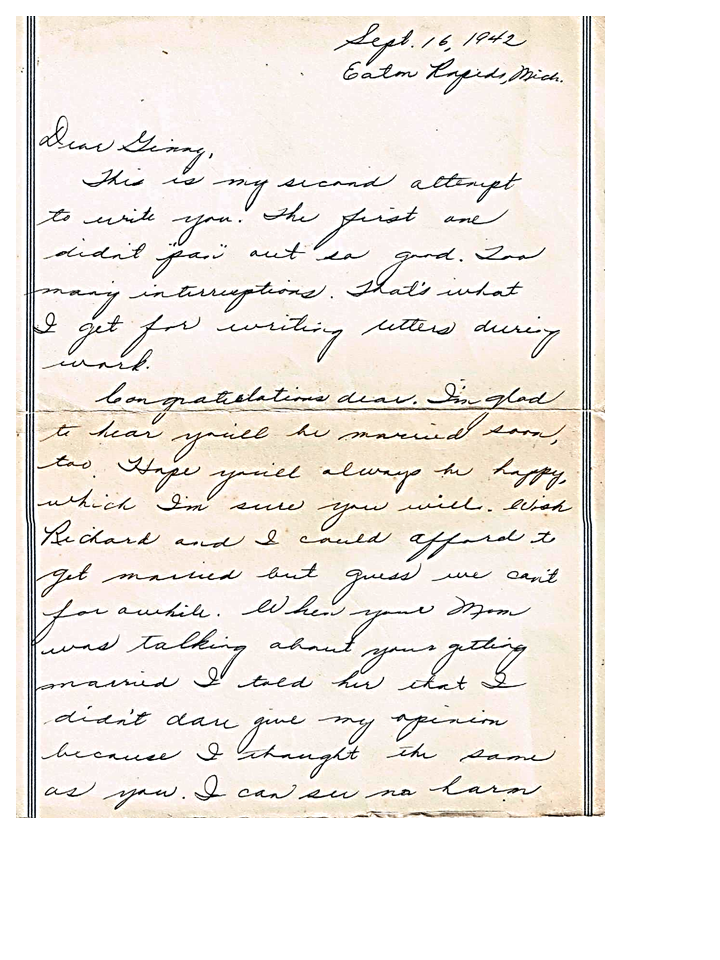 Sept. 16, 1942
Eaton Rapids, Mich.
Dear Ginny,
This is my second attempt
to write you. The first one
didn't "pan" out so good. Too
many interruptions. That's what
I get for writing letters during
work.
Congratulations dear. I'm glad
to hear you'll be married soon,
too. Hope you'll always be happy,
which I'm sure you will. Wish
Richard and I could afford to
get married but guess we can't
for awhile. When your Mom
was talking about your getting
married I told her that I
didn't dare give my opinion
because I thought the same
as you. I can see no harm